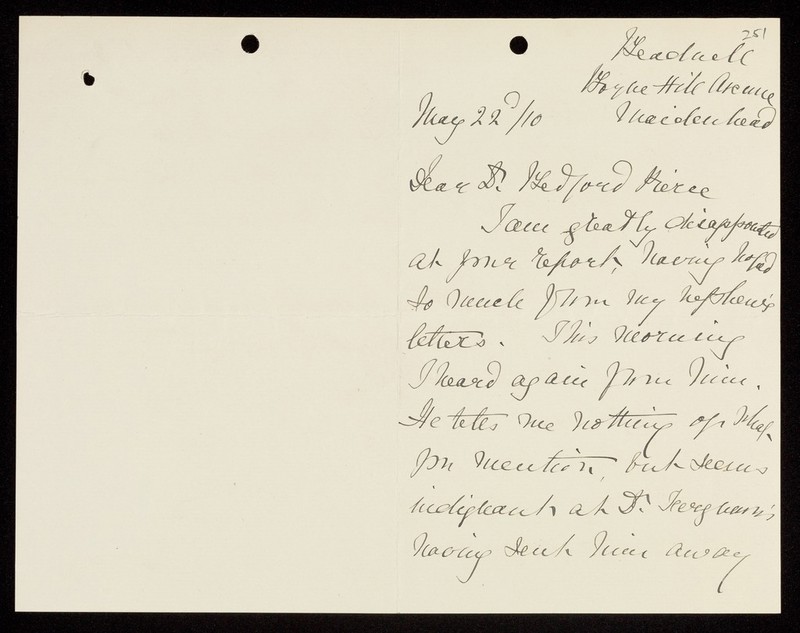 251
Headwell
Boyne Hill Avenue
Maidenhead
May 22d/10
Dear Dr. Bedford Pierce
I am greatly disappointed
at your report, having hoped
so much from my nephew's
letters. This morning
I heard again from him.
He tells me nothing of what
you mention, but seems
indignant at Dr. Ferguson's
having sent him away